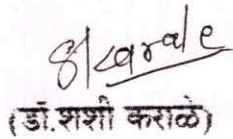 SKarale
(डॉ.शशी कराळे)